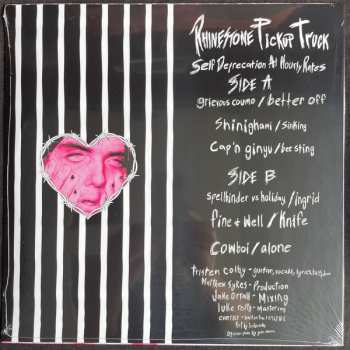 RHINESTONE PICKUP TRUCK
Self Deprecation At Hourly Rates
SIDE A
grievous coumo / better off
Shinighami / Sinking
Cap'n ginyu / bee sting
SIDE B
spellbinder vs holiday / ingrid
fine & well / Knife
cowboi / alone
tristen colby - guitar, vocals, lyrics,
Matthew Sykes - Production
Jake Orrall - Mixing
luke reilly - mastering